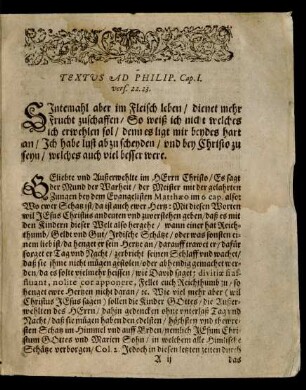 TEXTUS AD PHILIP. Cap. I.
vers. 22. 23.
SIntemahl aber im Fleisch leben / dienet mehr
Frucht zuschaffen / So weiß ich nicht welches
ich erwehlen sol / denn es ligt mir beydes hart
an / Ich habe lust abzuscheyden / vnd bey Christo zu
seyn / welches auch viel besser were.
GEliebte vnd Außerwehlte im HErrn Christo / Es sagt
der Mund der Warheit / der Meister mit der gelahrten
Zungen bey dem Evangelisten Matthæo im 6 cap. also:
Wo ewer Schatz ist / da ist auch ewer Hertz: Mit diesen Worten
wil JEsus Christus andeuten vnd zuverstehen geben / daß es mit
den Kindern dieser Welt also hergehe / wann einer hat Reich-
thumb / Geldt vnd Gut / Irdische Schätze / oder was sonsten ei-
nem lieb ist / da henget er sein Hertze an / darauff trawet er / dafür
sorget er Tag vnd Nacht / zerbricht seinen Schlaff vnd wachet /
daß sie ihme nicht mügen gestolen / oder abhendig gemachet wer-
den / da es solte vielmehr heissen / wie David saget: divitiæ si af-
fluant, nolite cor apponere, Fellet euch Reichthumb zu / so
henget ewre Hertzen nicht daran / ꝛc. Wie viel mehr aber (wil
Christus JEsus sagen) sollen die Kinder GOttes / die Außer-
wehlten des HErrn / dahin gedencken ohne vnterlaß Tag vnd
Nacht / daß sie mügen haben den edelsten / höchsten vnd thewre-
sten Schatz im Himmel vnd auff Erden / nemlich JEsum Chri-
stum GOttes vnd Marien Sohn / in welchem alle Himlische
Schätze verborgen / Col. 2. Jedoch in diesen letzten zeiten durch
A ij das